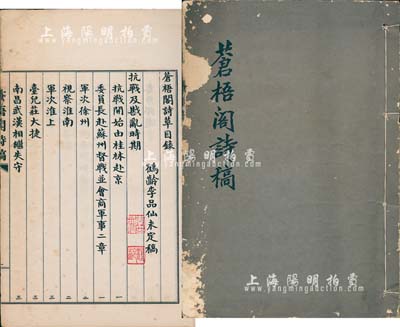 上海陽明拍賣
蒼梧閣詩草目錄
鶴齡李品仙未定稿
抗戰及戡亂時期
抗戰開始由桂林赴京 一
委員長赴蘇州督戰並會商軍事二章 一
軍次徐州 二
視察淮南 二
軍次淮上 二
臺兒莊大捷 三
南昌武漢相繼失守 三
蒼梧閣詩稿
上海陽明拍賣
www.yangmingauction.com